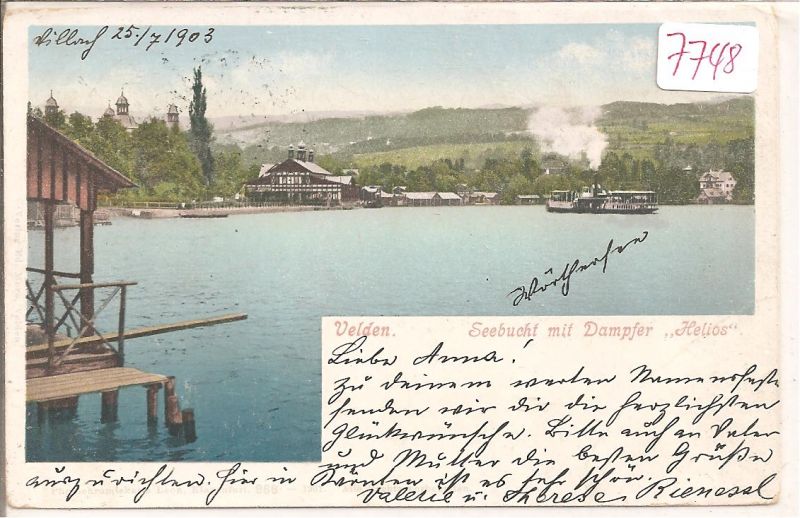 Villach 25./7 1903
7748
Wörthersee
Velden. Seebucht mit Dampfer „Helios“.
Liebe Anna!
Zu deinem werten Namensfeste
senden wir dir die herzlichsten
Glückwünsche. Bitte auch an Vater
und Mutter die besten Grüße
auszurichten. Hier in Kärnten ist es sehr schön.
Valerie u. Therese